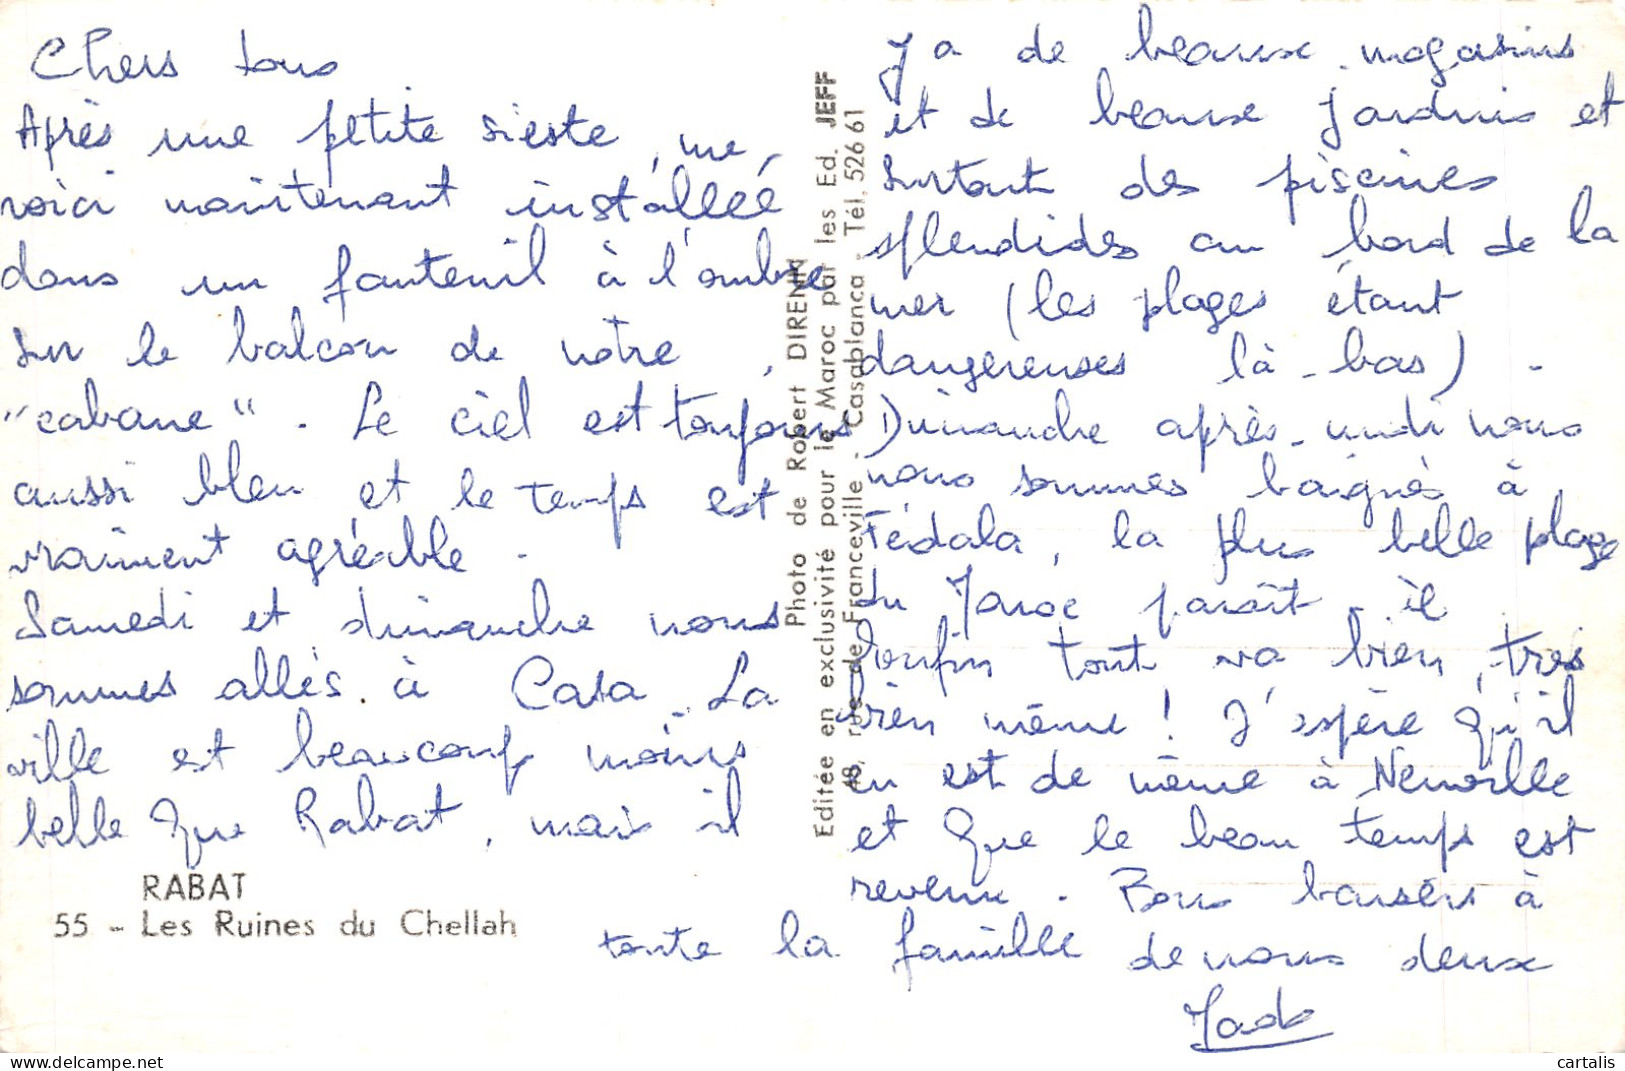 Chers tous
Après une petite sieste, me
voici maintenant installéé
dans un fauteuil à l'ombre
sur le balcon de notre
"cabane". Le ciel est toujours
aussi bleu et le temps est
vraiment agréable.
Samedi et dimanche nous
sommes allés à Casa. La
ville est beaucoup moins
belle que Rabat, mais il
y a de beaux magasins
et de beaux jardins et
surtout des piscines
splendides au bord de la
mer (les plages étant
dangereuses là-bas).
Dimanche après-midi nous
nous sommes baignés à
Fédala, la plus belle plage
du Maroc paraît-il
Enfin tout va bien, très
bien même ! J'espère qu'il
en est de même à Neuville
et que le beau temps est
revenu. Bons baisers à
toute la famille de nous deux
RABAT
55 - Les Ruines du Chellah
Photo de Robert DIRENN
Editée en exclusivité pour le Maroc par les Ed. JEFF
48, rue de Franceville - Casablanca Tél. 526 61
cartalis